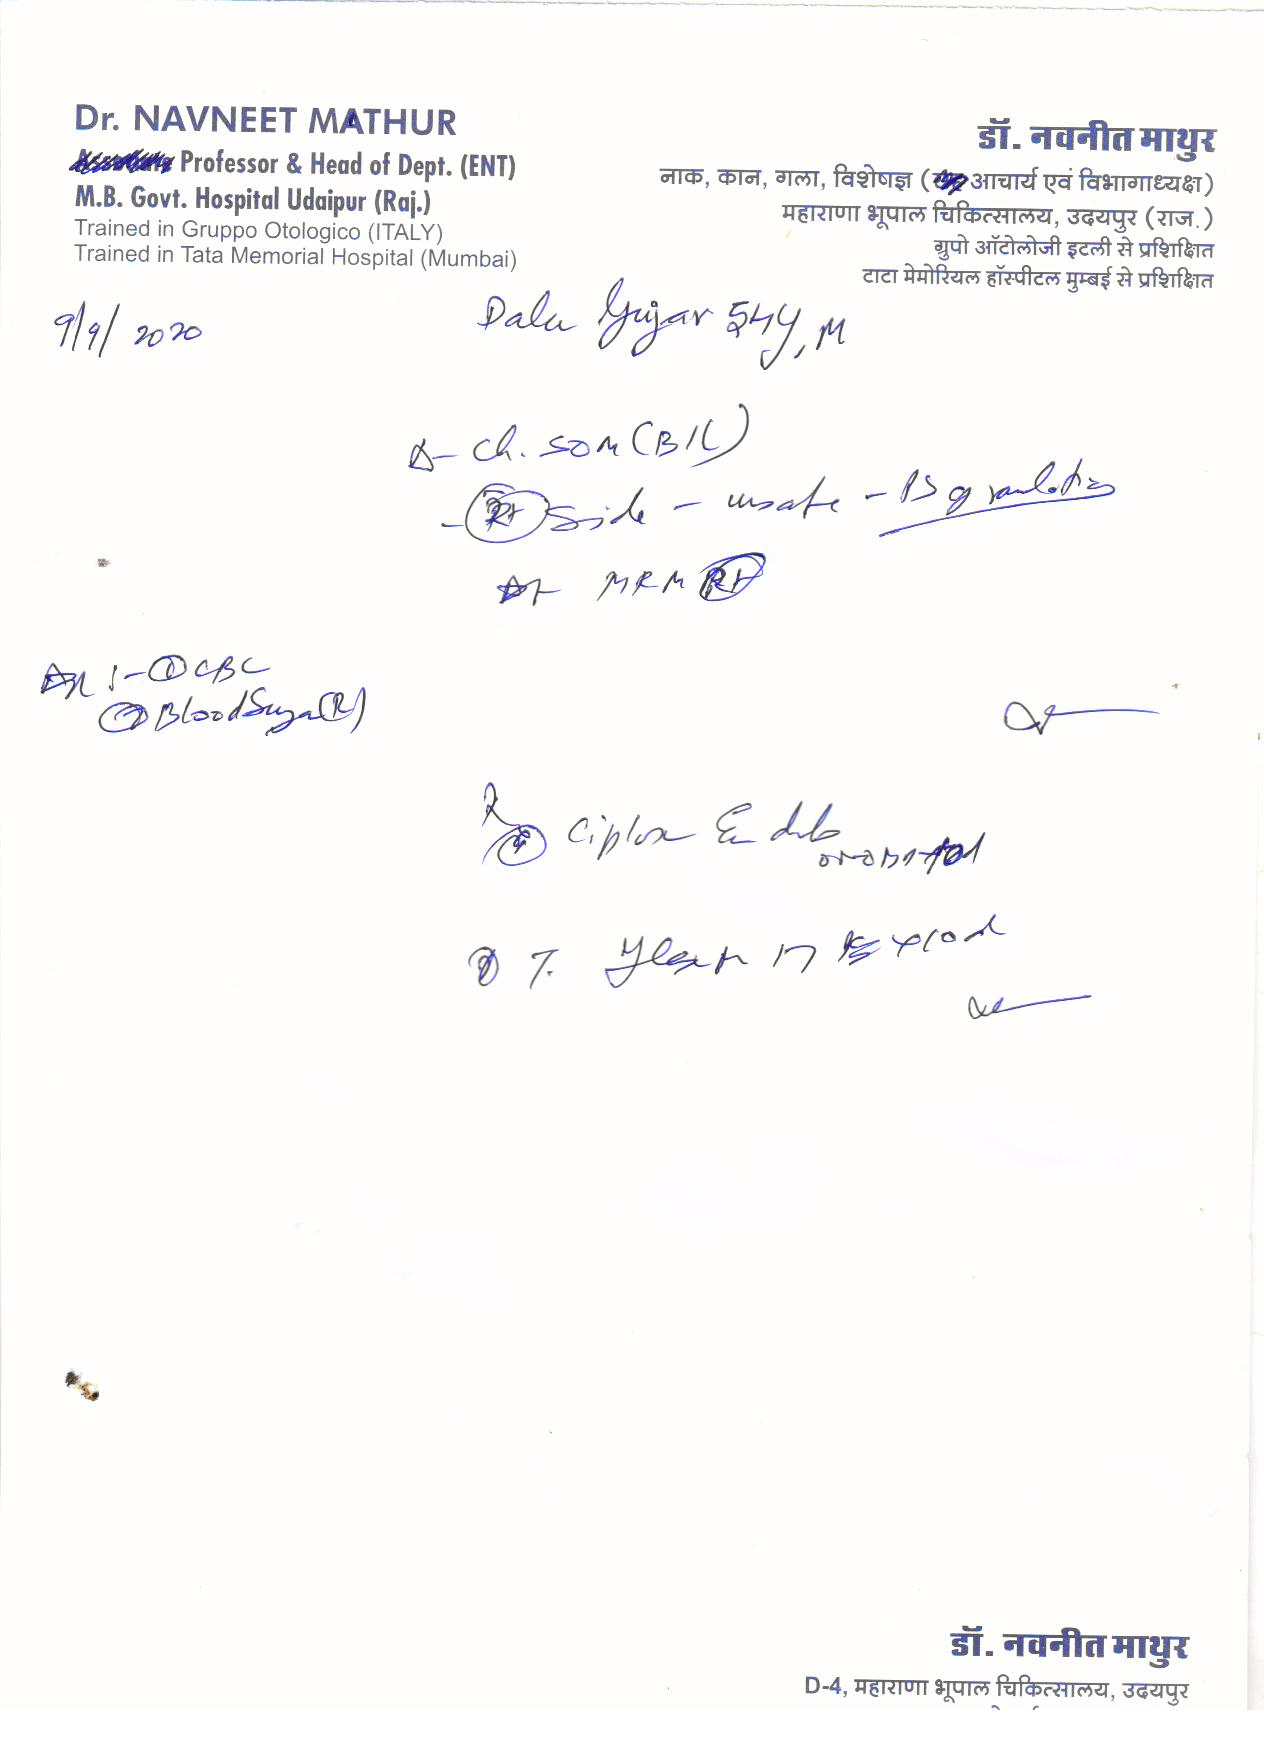 Dr. NAVNEET MATHUR
Professor & Head of Dept. (ENT)
M.B. Govt. Hospital Udaipur (Raj.)
Trained in Gruppo Otologico (ITALY)
Trained in Tata Memorial Hospital (Mumbai)
डॉ. नवनीत माथुर
नाक, कान, गला, विशेषज्ञ ( आचार्य एवं विभागाध्यक्ष)
महाराणा भूपाल चिकित्सालय, उदयपुर (राज.)
ग्रुपो ऑटोलोजी इटली से प्रशिक्षित
टाटा मेमोरियल हॉस्पीटल मुम्बई से प्रशिक्षित
9/9/2020
Dalu Gujar 54y, M
Δ- Ch. SOM (B/L)
- Rt side - unsafe - granulation
MRM Rt
1- ① CBC
② Blood Sugar (R)
Ciplox E
② T.
डॉ. नवनीत माथुर
D-4, महाराणा भूपाल चिकित्सालय, उदयपुर